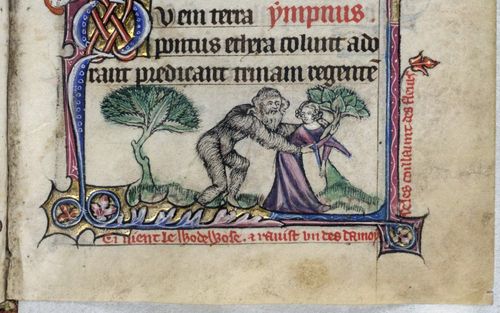 Quem terra ympnus.
pontus ethera colunt ado
rant predicant trinam regentē
Ci vient le Wodewose . & ravist un des damoy
seles coillaunt des fleurs